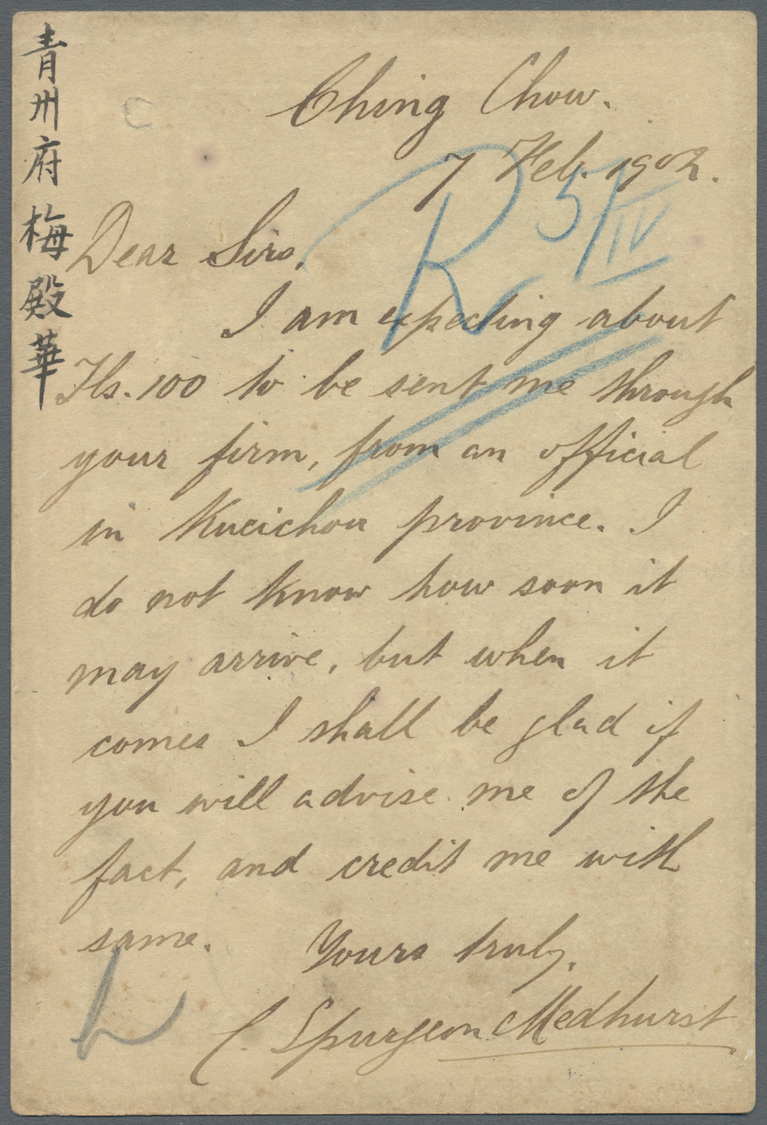 青州府梅殿華
Ching Chow.
7 Feb. 1902.
Dear Sirs,
R 5/IV
I am expecting about
Tls. 100 to be sent me through
your firm, from an official
in Kueichou province. I
do not know how soon it
may arrive, but when it
comes I shall be glad if
you will advise me of the
fact, and credit me with
same.
Yours truly,
C Spurgeon Medhurst